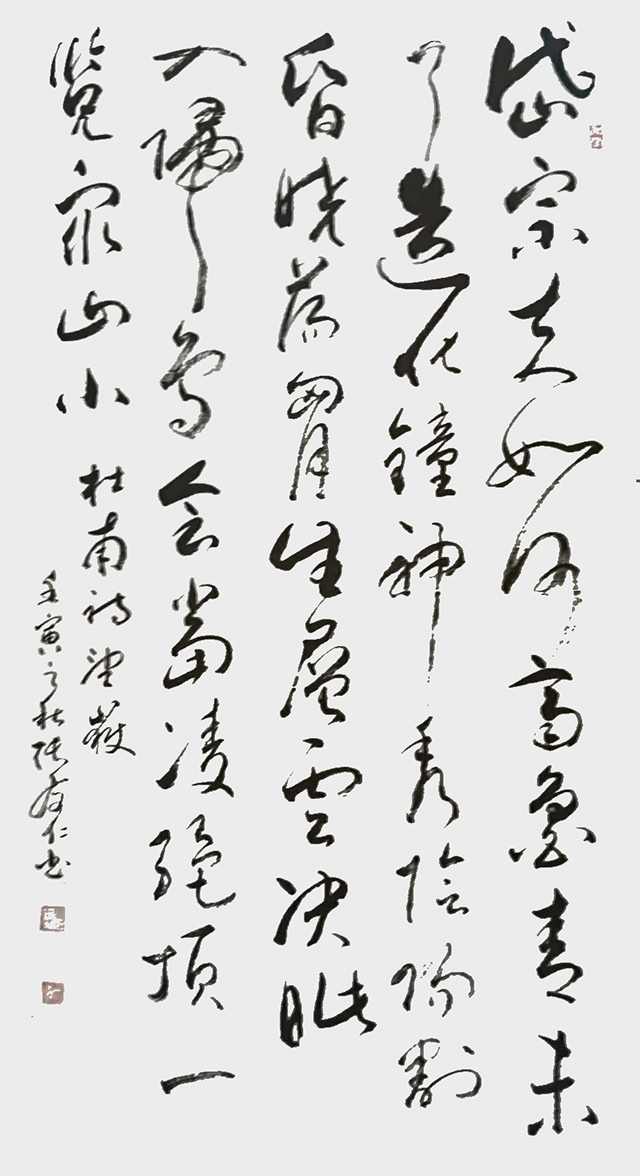 岱宗夫如何齊魯青未
了造化鐘神秀陰陽割
昏曉蕩胷生層雲决眦
入歸鳥會當凌絕頂一
覽眾山小
杜甫詩望嶽
壬寅之秋張仁書